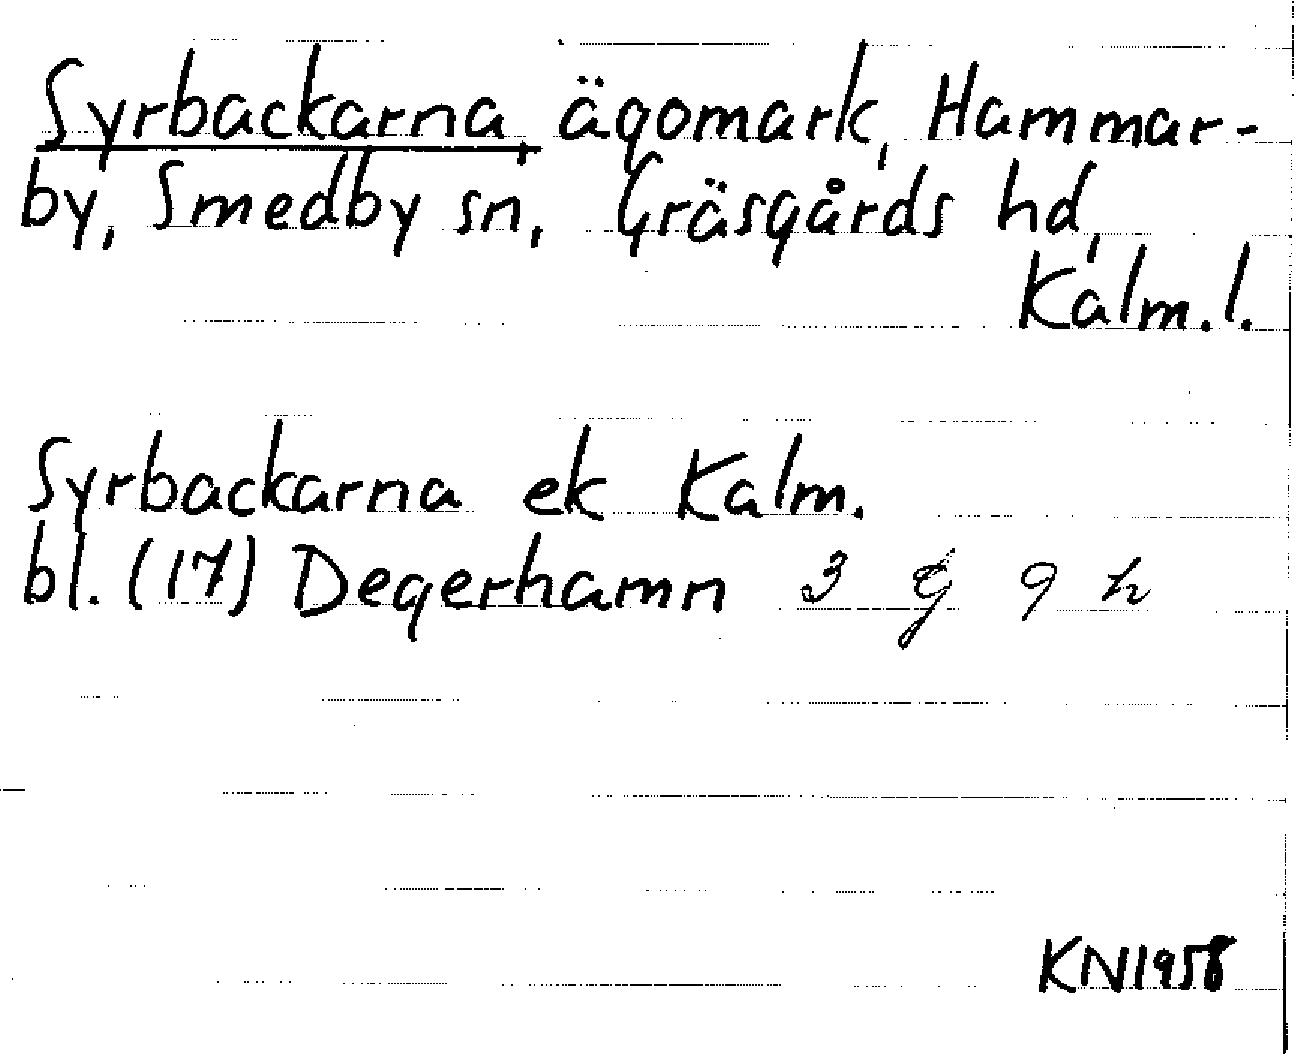 Syrbackarna, ägomark, Hammar-
by, Smedby sn, Gräsgårds hd,
Kalm. l.
Syrbackarna ek Kalm.
bl. (17) Degerhamn 3 G 9 h
KN1958